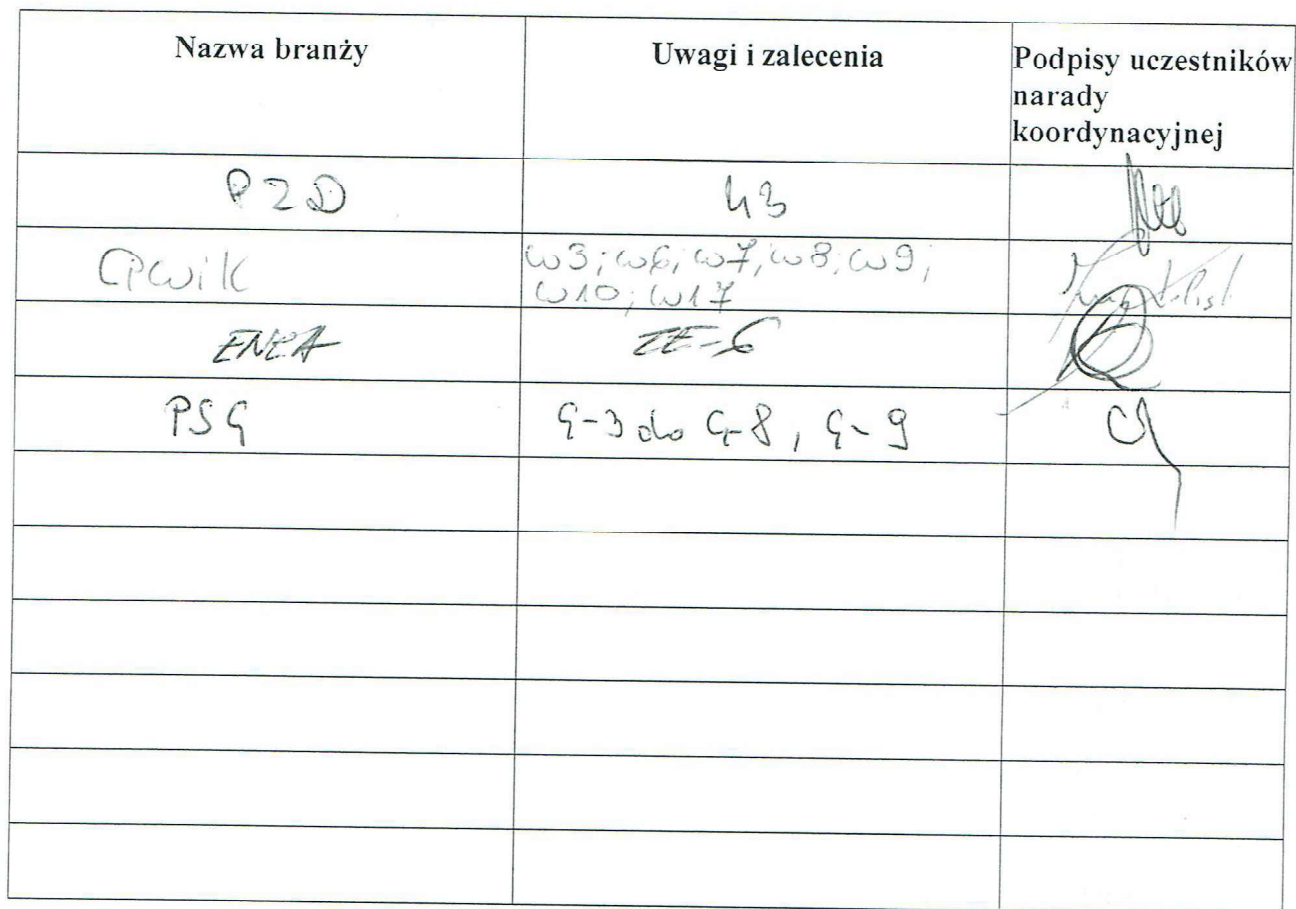 Nazwa branży
Uwagi i zalecenia
Podpisy uczestników
narady
koordynacyjnej
PZD
43
CPWiK
w3; w6; w7; w8; w9;
w10; w17
ENEA
ZE-6
PSG
G-3 do G-8, G-9